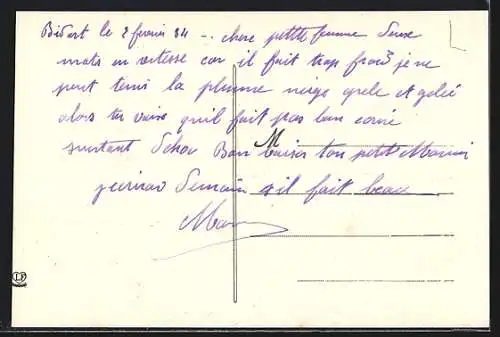 Bidart le 2 fevrier 34 - chere petite femme deux
mots en vitesse car il fait trop froid je ne
peut tenir la plume neige grele et gelée
alors tu vois qu'il fait pas bon
surtout Bon baiser ton petit
jecrirai demain s'il fait beau
M
LF